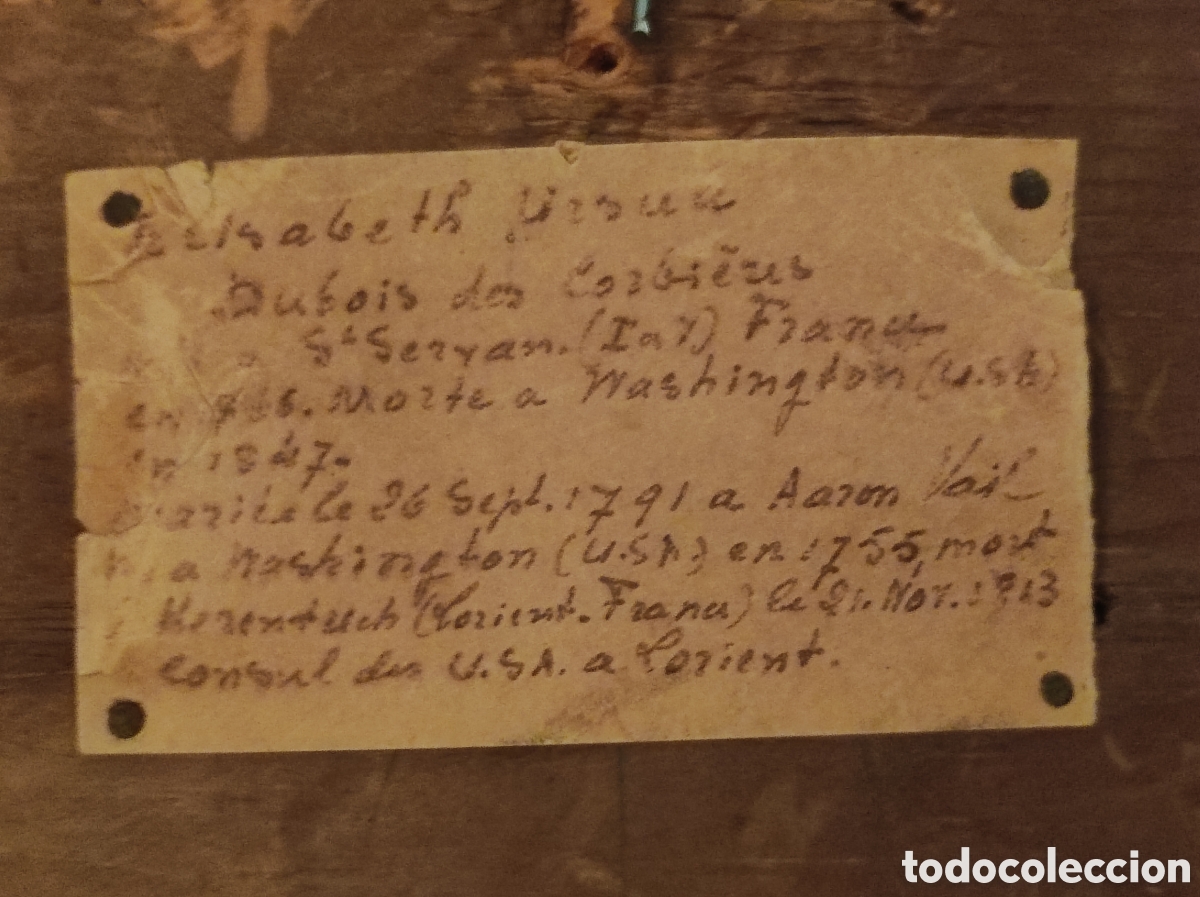 Elisabeth Ursule
Dubois des Corbières
St Servan. (I et V) France
en Morte a Washington (U.S.A)
en 1847.
Mariée le 26 Sept. 1791 a Aaron Vail
a Washington (U.S.A) en 1755, mort
Kerentrech (Lorient. France) le 21. Nov. 1813
Consul des U.S.A. a Lorient.
todocoleccion